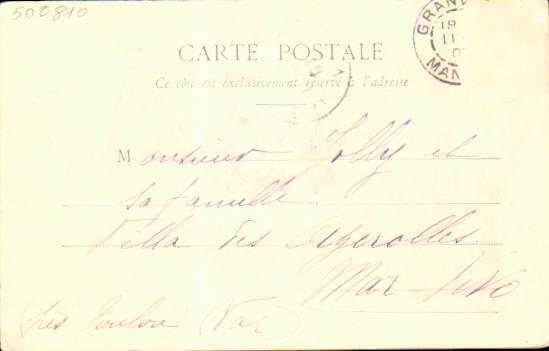 500810
GRAN
18
11
MAN
CARTE POSTALE
Ce côté est exclusivement réservé à l'adresse
Monsieur Jolly et
sa famille.
Villa des Ayerolles.
Mar-Vivo
(près Toulon) (Var)